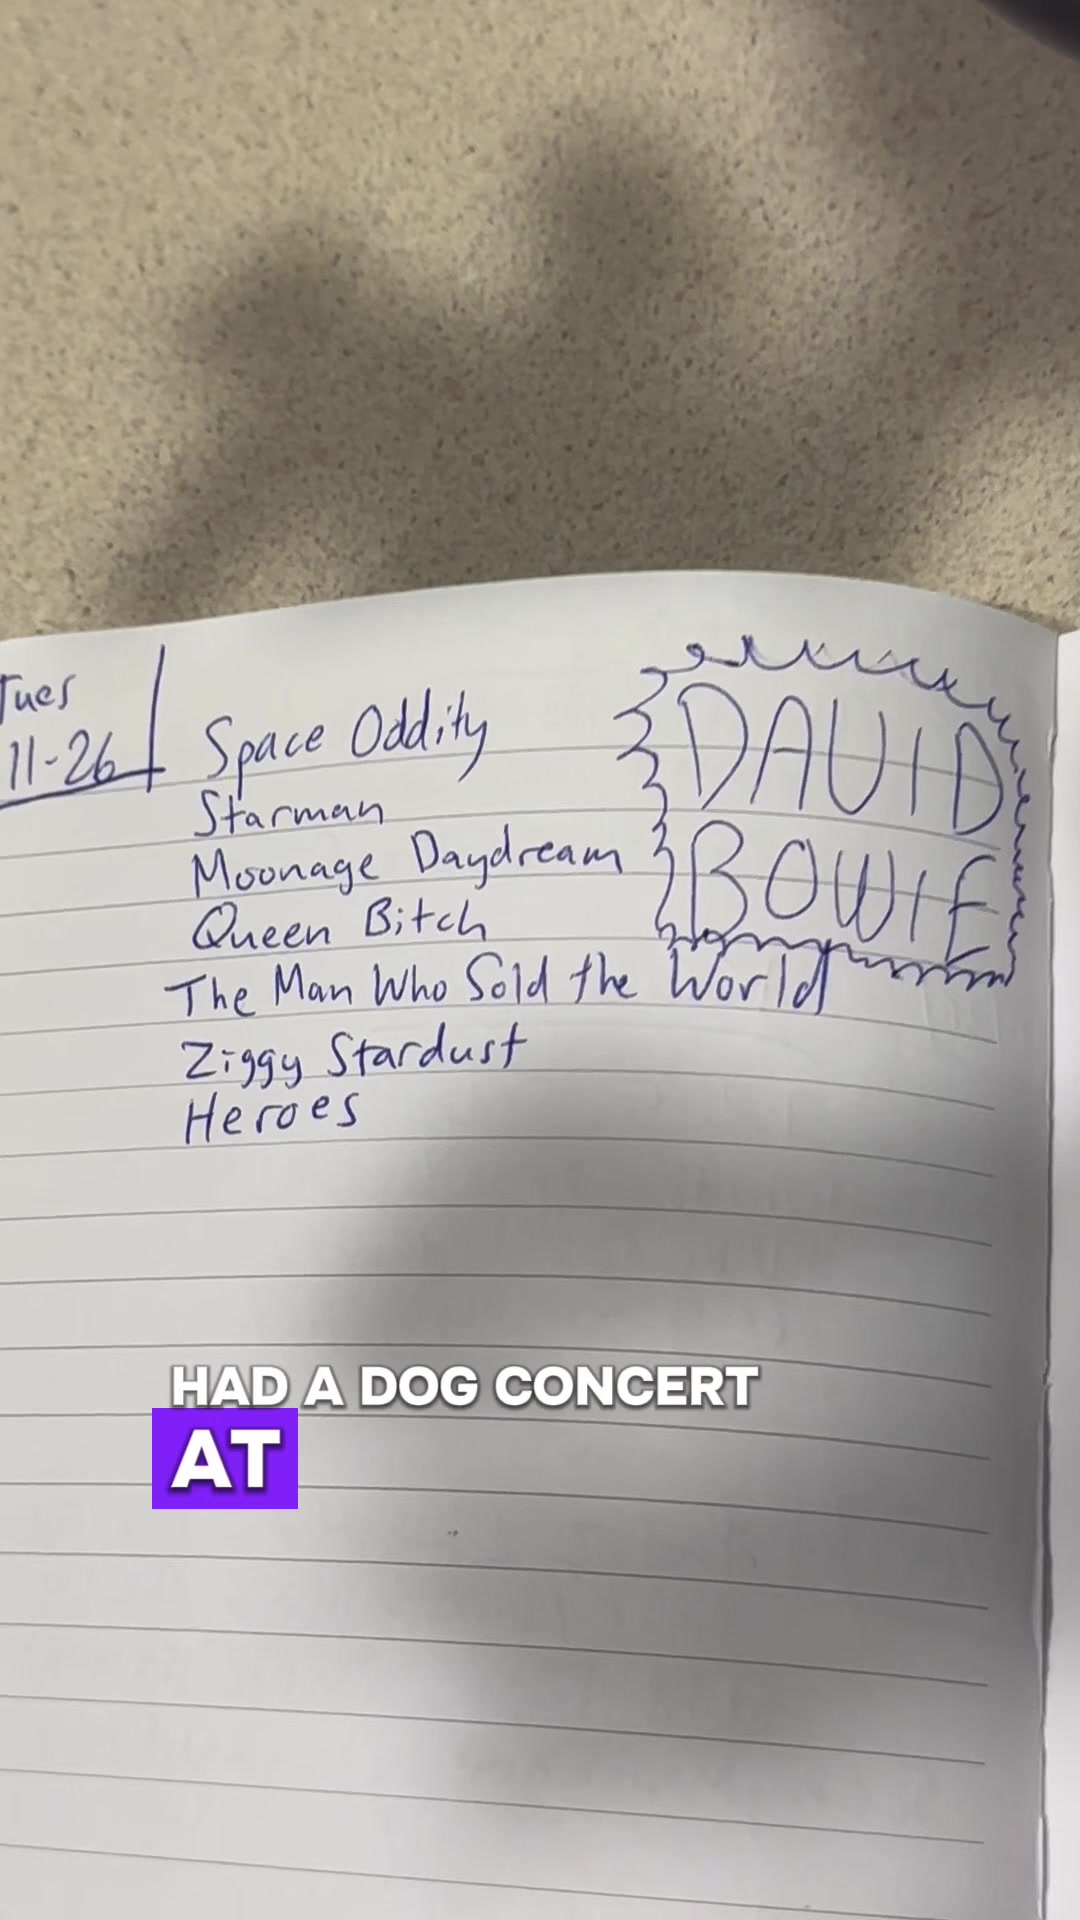 Tues
11-26
Space Oddity
Starman
Moonage Daydream
Queen Bitch
The Man Who Sold the World
Ziggy Stardust
Heroes
DAVID
BOWIE
HAD A DOG CONCERT
AT